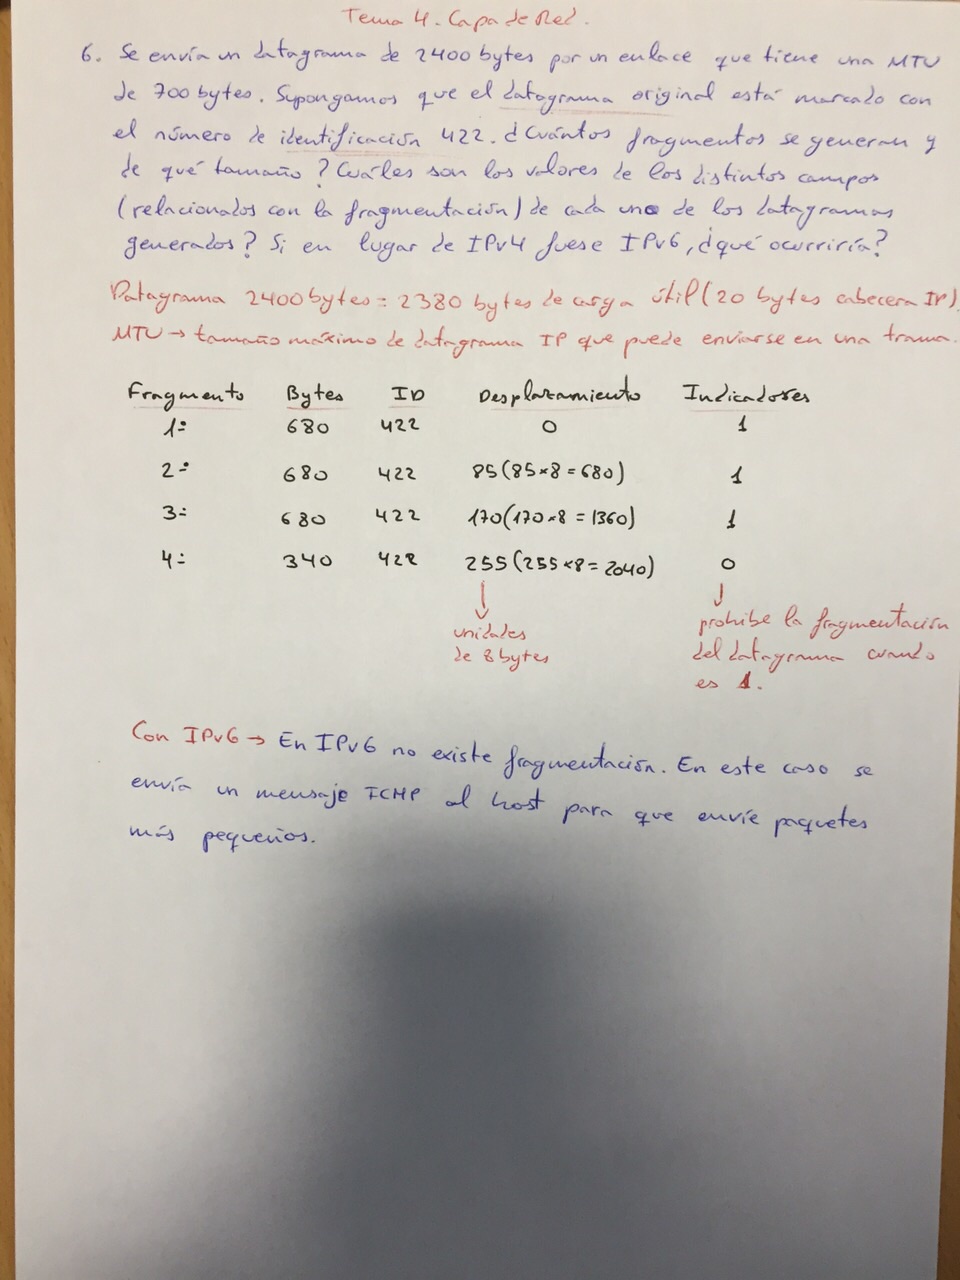 Tema 4. Capa de Red.
6. Se envía un datagrama de 2400 bytes por un enlace que tiene una MTU
de 700 bytes. Supongamos que el datagrama original está marcado con
el número de identificación 422. ¿Cuántos fragmentos se generan y
de qué tamaño? Cuáles son los valores de los distintos campos
(relacionados con la fragmentación) de cada uno de los datagramas
generados? Si en lugar de IPv4 fuese IPv6, ¿qué ocurriría?
Datagrama 2400 bytes = 2380 bytes de carga útil (20 bytes cabecera IP).
MTU → tamaño máximo de datagrama IP que puede enviarse en una trama.
Fragmento Bytes ID Desplazamiento Indicadores
1º 680 422 0 1
2º 680 422 85 (85×8 = 680) 1
3º 680 422 170 (170×8 = 1360) 1
4º 340 422 255 (255×8 = 2040) 0
unidades
de 8 bytes
prohibe la fragmentación
del datagrama cuando
es 1.
Con IPv6 → En IPv6 no existe fragmentación. En este caso se
envía un mensaje ICMP al host para que envíe paquetes
más pequeños.